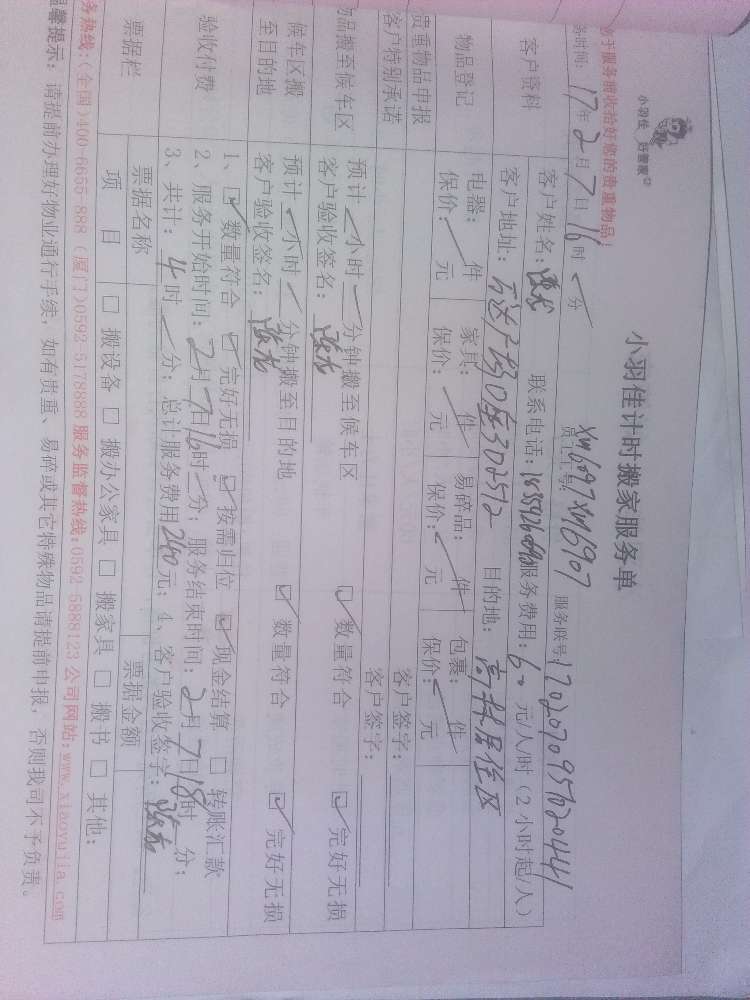 小羽佳 好管家
小羽佳计时搬家服务单
于服务前收拾好您的贵重物品!
务时间: 17年2月7日16时 分
员工工号: XM6097 XM6907
服务账号: 170207095702044
客户资料
客户姓名: 联系电话: 服务费用: 60 元/人/时 (2小时起/人)
客户地址: 万达广场D座302512 目的地: 高林居住区
物品登记
电器: 件 家具: 件 易碎品: 件 包裹: 件
保价: 元 保价: 元 保价: 元 保价: 元
贵重物品申报
客户签字:
客户特别承诺
客户签字:
物品搬至候车区
预计 小时 分钟搬至候车区 数量符合 完好无损
客户验收签名:
候车区搬至目的地
预计 小时 分钟搬至目的地 数量符合 完好无损
客户验收签名:
验收付费
1、 数量符合 完好无损 按需归位 现金结算 转账汇款
2、服务开始时间: 2月7日16时 分; 服务结束时间: 2月7日18时 分;
3、共计: 4时 分; 总计服务费用240元; 4、客户验收签字:
票据栏
票据名称 票据金额
项 目 搬设备 搬办公家具 搬家具 搬书 其他:
务热线:(全国)400-6655-888 (厦门)0592-5178888 服务监督热线:0592-5888123 公司网站:www.xiaoyujia.com
温馨提示: 请提前办理好物业通行手续, 如有贵重、易碎或其它特殊物品请提前申报, 否则我司不予负责。